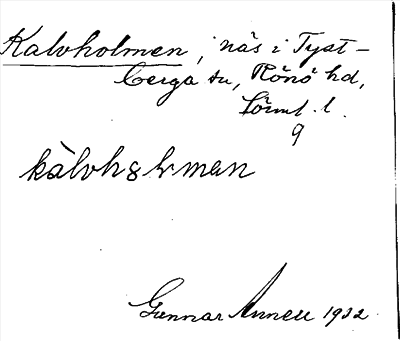 Kalvholmen, näs i Tyst-
berga sn, Rönö hd,
Sörml. l.
9
kàlvhȣlmen
Gunnar Annell 1932